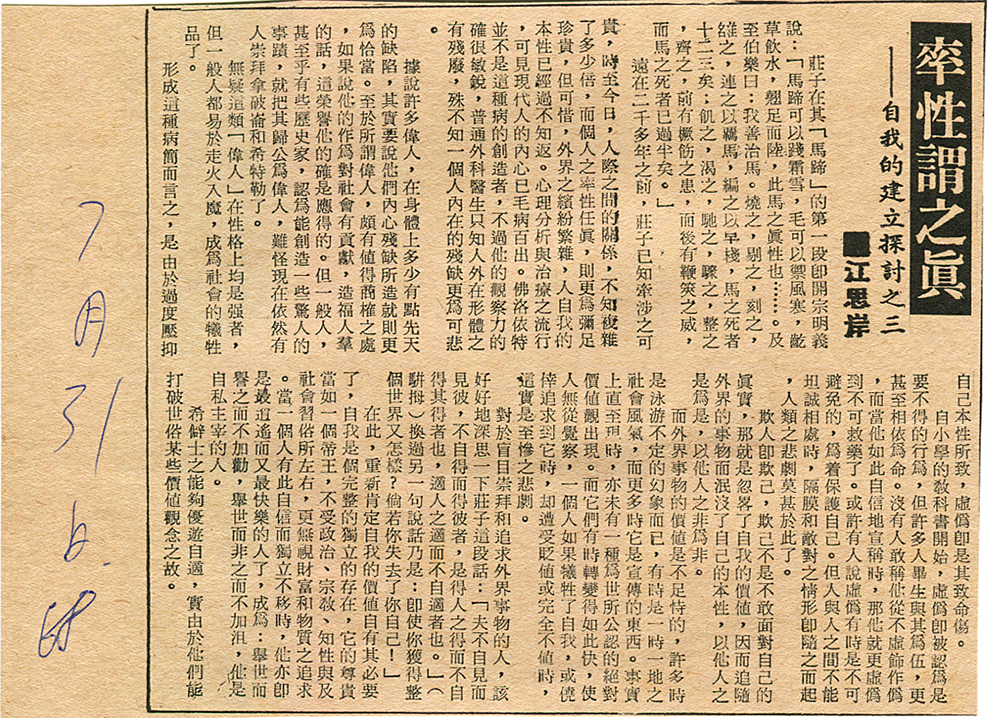 率性謂之眞
——自我的建立探討之三
江思岸
莊子在其「馬蹄」的第一段卽開宗明義
說:「馬蹄可以踐霜雪,毛可以禦風寒,齕
草飲水,翹足而陸,此馬之眞性也……。及
至伯樂曰:我善治馬。燒之,剔之,刻之,
雒之,連之以羈馬,編之以皁棧,馬之死者
十二三矣;飢之,渴之,馳之,驟之,整之
,齊之,前有橛筋之患,而後有鞭筴之威,
而馬之死者已過半矣。」
遠在二千多年之前,莊子己知牽涉之可
貴,時至今日,人際之間的關係,不知複雜
了多少倍,而個人之率性任眞,則更爲彌足
珍貴,但可惜,外界之繽紛繁雜,人自我的
本性已經過不知返。心理分析與治療之流行
,可見現代人的內心已毛病百出。佛洛依特
並不是這種病的創造者,不過他的觀察力的
確很敏銳,普通外科醫生只知人外在形體之
有殘廢,殊不知一個人內在的殘缺更爲可悲
。
據說許多偉人,在身體上多少有點先天
的缺陷,其實要說他們內心殘缺所造就則更
爲恰當。至於所謂偉人,頗有值得商榷之處
,如果說他的作爲對社會有貢獻,造福人羣
的話,這榮譽他的確是應得的。但一般人,
甚至乎有些歷史家,認爲能創造一些驚人的
事蹟,就把其歸公爲偉人,難怪現在依然有
人崇拜拿破崙和希特勒了。
無疑這類「偉人」在性格上均是强者,
但一般人都易於走火入魔,成爲社會的犧牲
品了。
形成這種病簡而言之,是由於過度壓抑
自己本性所致,虛僞卽是其致命傷。
自小學的敎科書開始,虛僞卽被認爲是
要不得的行爲,但許多人畢生與其爲伍,更
甚至相依爲命。沒有人敢稱他從不虛飾作僞
,而當他如此自信地宣稱時,那他就更虛僞
到不可救藥了。或許有人說虛僞有時是不可
避免的,爲着保護自己。但人與人之間不能
坦誠相處時,隔膜和敵對之情形卽隨之而起
,人類之悲劇莫甚於此了。
欺人卽欺己,欺己不是不敢面對自己的
眞實,那就是忽畧了自我的價值,因而追隨
外界的事物而泯沒了自己的本性,以他人之
是爲是,以他人之非爲非。
而外界事物的價值是不足恃的,許多時
是泳游不定的幻象而已,有時是一時一地之
社會風氣,而更多時它是宣傳的東西。事實
上直至現時,亦未有一種爲世所公認的絕對
價值觀出現。而它們有時轉變得如此快,使
人無從覺察,一個人如果犧牲了自我,或僥
倖追求到它時,却遭受貶値或完全不值時,
這實是至慘之悲劇。
對於盲目崇拜和追求外界事物的人,該
好好地深思一下莊子這段話:「夫不自見而
見彼,不自得而得彼者,是得人之得而不自
得其得者也,適人之適而不自適者也。」(
騈拇)換過另一句說話乃是:卽使你獲得整
個世界又怎樣?倘若你失去了你自己!」
在此,重新肯定自我的價值自有其必要
了,自我是個完整的獨立的存在,它的尊貴
當如一個帝王,不受政治、宗敎、知性與及
社會習俗所左右,更無視財富和物質之追求
。當一個人有此自信而獨立不移時,他亦卽
是最逍遙而又最快樂的人了,成爲:舉世而
譽之而不加勸,舉世而非之而不加沮,他是
自私主宰的人。
希僻士之能夠優遊自適,實由於他們能
打破世俗某些價値觀念之故。
7月31日.68